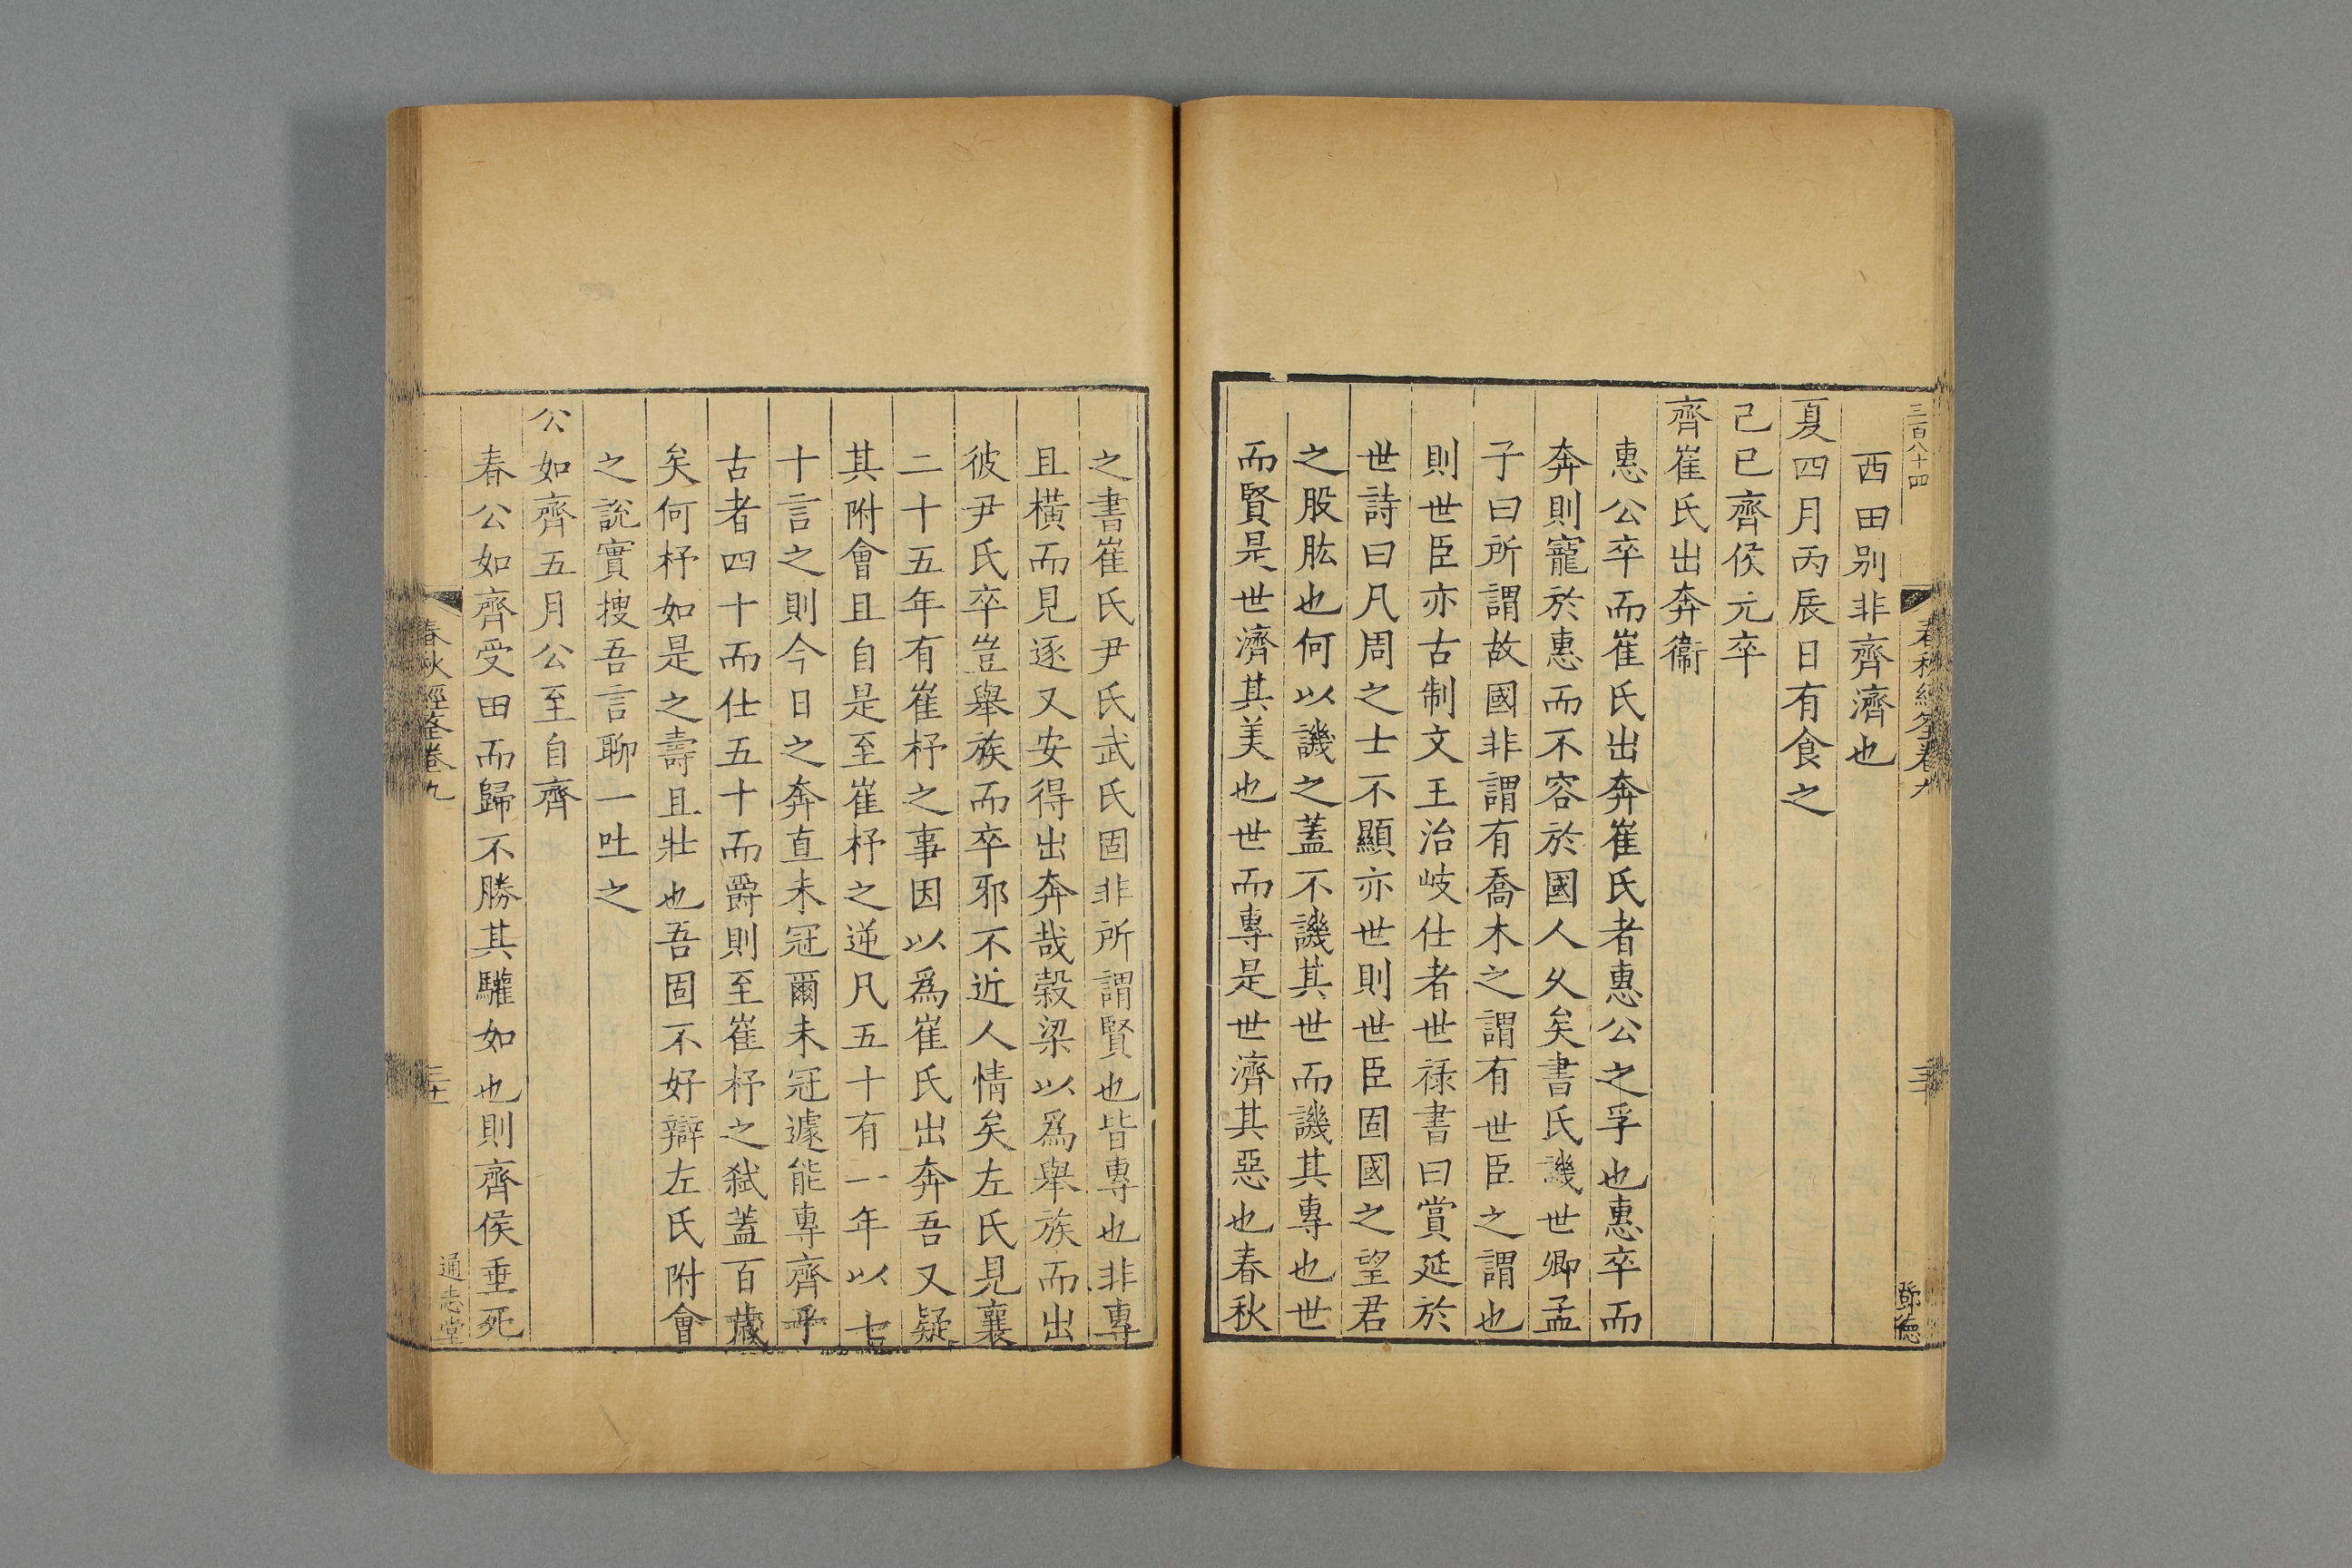 三百八十四
春秋經筌卷九
三十
鄧德
西田别非齊濟也
夏四月丙辰日有食之
己巳齊侯元卒
齊崔氏出奔衞
惠公卒而崔氏出奔崔氏者惠公之孚也惠卒而
奔則寵於惠而不容於國人乆矣書氏譏世卿孟
子曰所謂故國非謂有喬木之謂有世臣之謂也
則世臣亦古制文王治岐仕者世祿書曰賞延於
世詩曰凡周之士不顯亦世則世臣固國之望君
之股肱也何以譏之蓋不譏其世而譏其專也世
而賢是世濟其美也世而專是世濟其惡也春秋
之書崔氏尹氏武氏固非所謂賢也皆專也非專
且橫而見逐又安得出奔哉榖梁以爲舉族而出
彼尹氏卒豈舉族而卒邪不近人情矣左氏見襄
二十五年有崔杼之事因以爲崔氏出奔吾又疑
其附會且自是至崔杼之逆凡五十有一年以七
十言之則今日之奔直未冠爾未冠遽能專齊乎
古者四十而仕五十而爵則至崔杼之弑蓋百歲
矣何杼如是之壽且壯也吾固不好辯左氏附會
之說實搜吾言聊一吐之
公如齊五月公至自齊
春公如齊受田而歸不勝其驩如也則齊侯垂死
春秋經筌卷九
三十一
通志堂